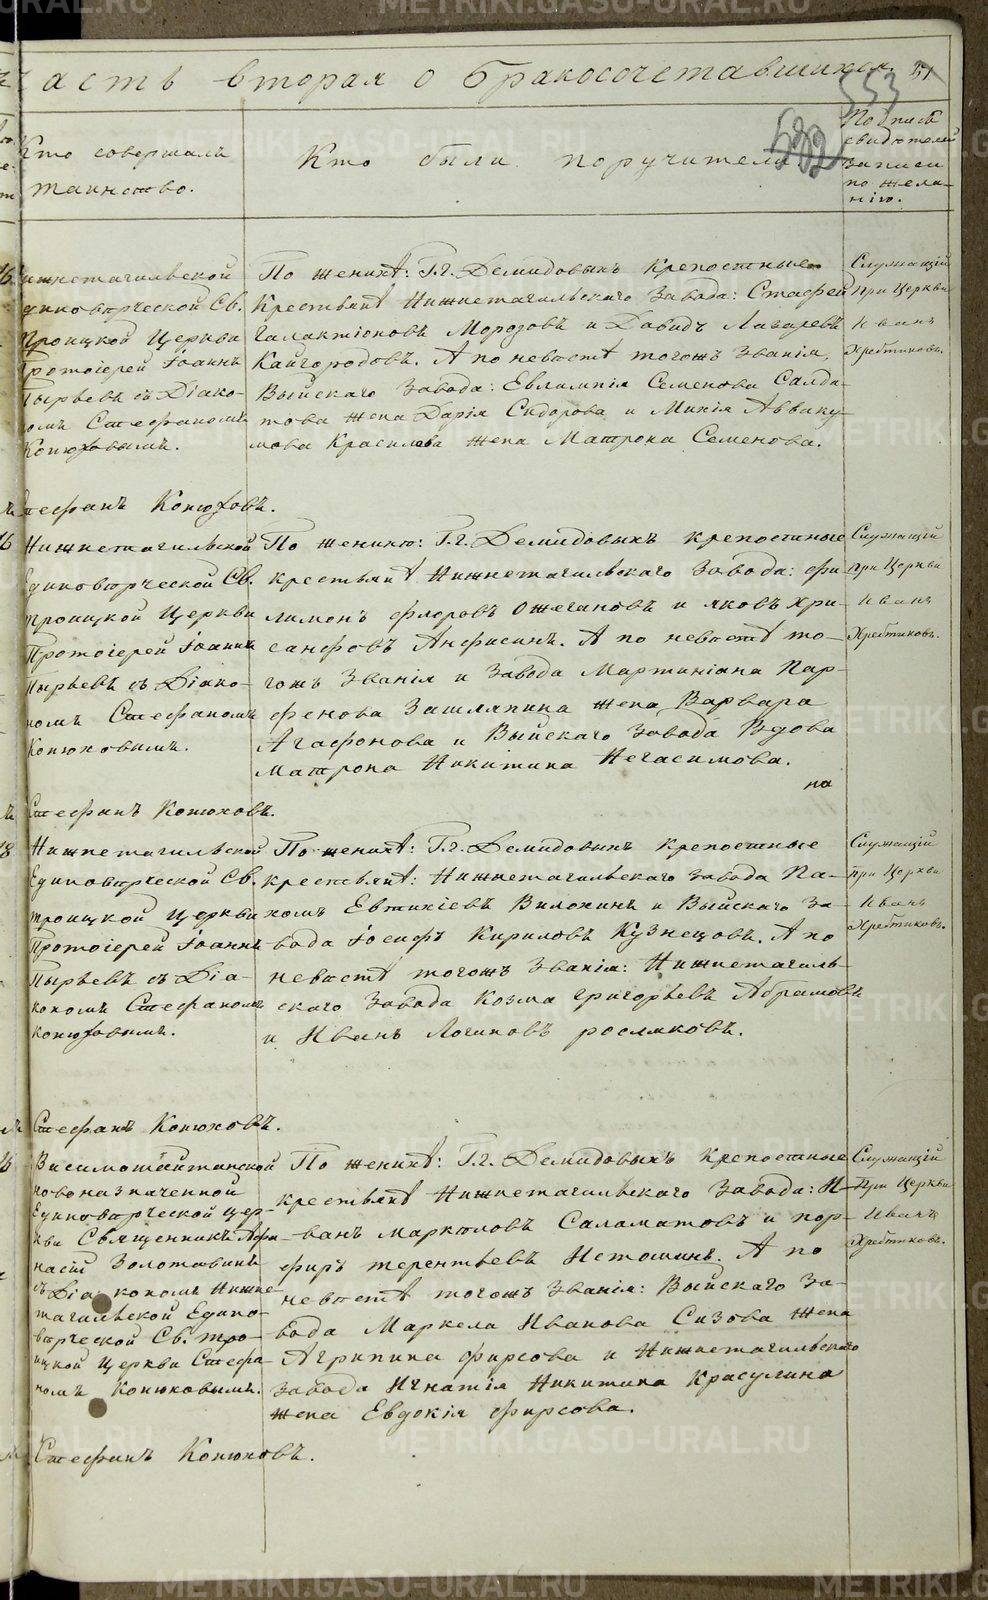 часть вторая о бракосочетавшихся.
553
532
Кто совершалъ
таинство.
Кто были поручители.
Подписи
свидѣтелей
записи
по жела-
нію.
Нижнетагильской
Единовѣрческой Св.
Троицкой Церкви
Протоіерей Іоаннъ
Пырьевъ съ Діако-
номъ Стефаномъ
Конюховымъ.
По женихѣ: Г.г. Демидовыхъ крепостные
Крестьянѣ Нижнетагильскаго Завода: Стафей
Галактіоновъ Морозовъ и Давидъ Лазаревъ
Кайгородовъ. А по невѣстѣ тогожъ званія,
Выйскаго Завода: Евлампія Семенова Салда-
това жена Дарія Сидорова и Минія Авваку-
мова Красилева жена Матрона Семенова.
Служащій
при Церкви
Иванъ
Хребтиковъ.
Стефанъ Конюховъ.
Нижнетагильской
Единовѣрческой Св.
троицкой Церкви
Протоіерей Іоаннъ
Пырьевъ съ Діако-
номъ Стефаномъ
Конюховымъ.
По женихѣ: Г.г. Демидовыхъ крепостные
крестьянѣ Нижнетагильскаго Завода: фи-
лимонъ флоровъ Ожегановъ и яковъ хри-
санфовъ Анфисинъ. А по невѣстѣ то-
гожъ Званія и Завода Мартиніана Пар-
фенова Зашляпина жена Варвара
Агафонова и Выйскаго Завода Вдова
Матрона Никитина Негасимова.
на
Служащій
при Церкви
Иванъ
Хребтиковъ.
Стефанъ Конюховъ.
Нижнетагильской
Единовѣрческой Св.
троицкой Церкви
Протоіерей Іоаннъ
Пырьевъ съ Діа-
кономъ Стефаномъ
конюховымъ.
По женихѣ: Г.г. Демидовыхъ крепостные
крестьянѣ: Нижнетагильскаго завода Па-
хомъ Евтихіевъ Вилохинъ и Выйскаго За-
вода Іосифъ Кириловъ Кузнецовъ. А по
невѣстѣ тогожъ Званія: Нижнетагиль-
скаго Завода Козма григорьевъ Абрамовъ
и Иванъ Логиновъ росляковъ.
Служащій
при Церкви
Иванъ
Хребтиковъ.
Стефанъ Конюховъ.
Висимошайтанской
новоназначенной
Единовѣрческой цер-
кви Священникъ Афа-
насій Золотавинъ
съ Діакономъ Нижне-
тагильской Едино-
вѣрческой Св. тро-
ицкой Церкви Стефа-
номъ Конюховымъ.
По женихѣ: Г.г. Демидовыхъ Крепостные
крестьянѣ Нижнетагильскаго Завода: И-
ванъ маркеловъ Саламатовъ и пор-
фиръ терентьевъ Истоминъ. А по
невѣстѣ тогожъ Званія: Выйскаго За-
вода Маркела Иванова Сизова жена
Агрипина фирсова и Нижнетагильскаго
Завода Игнатія Никитина Красулина
жена Евдокія фирсова.
Служащій
При Церкви
Иванъ
Хребтиковъ.
Стефанъ Конюховъ.
METRIKI.GASO-URAL.RU